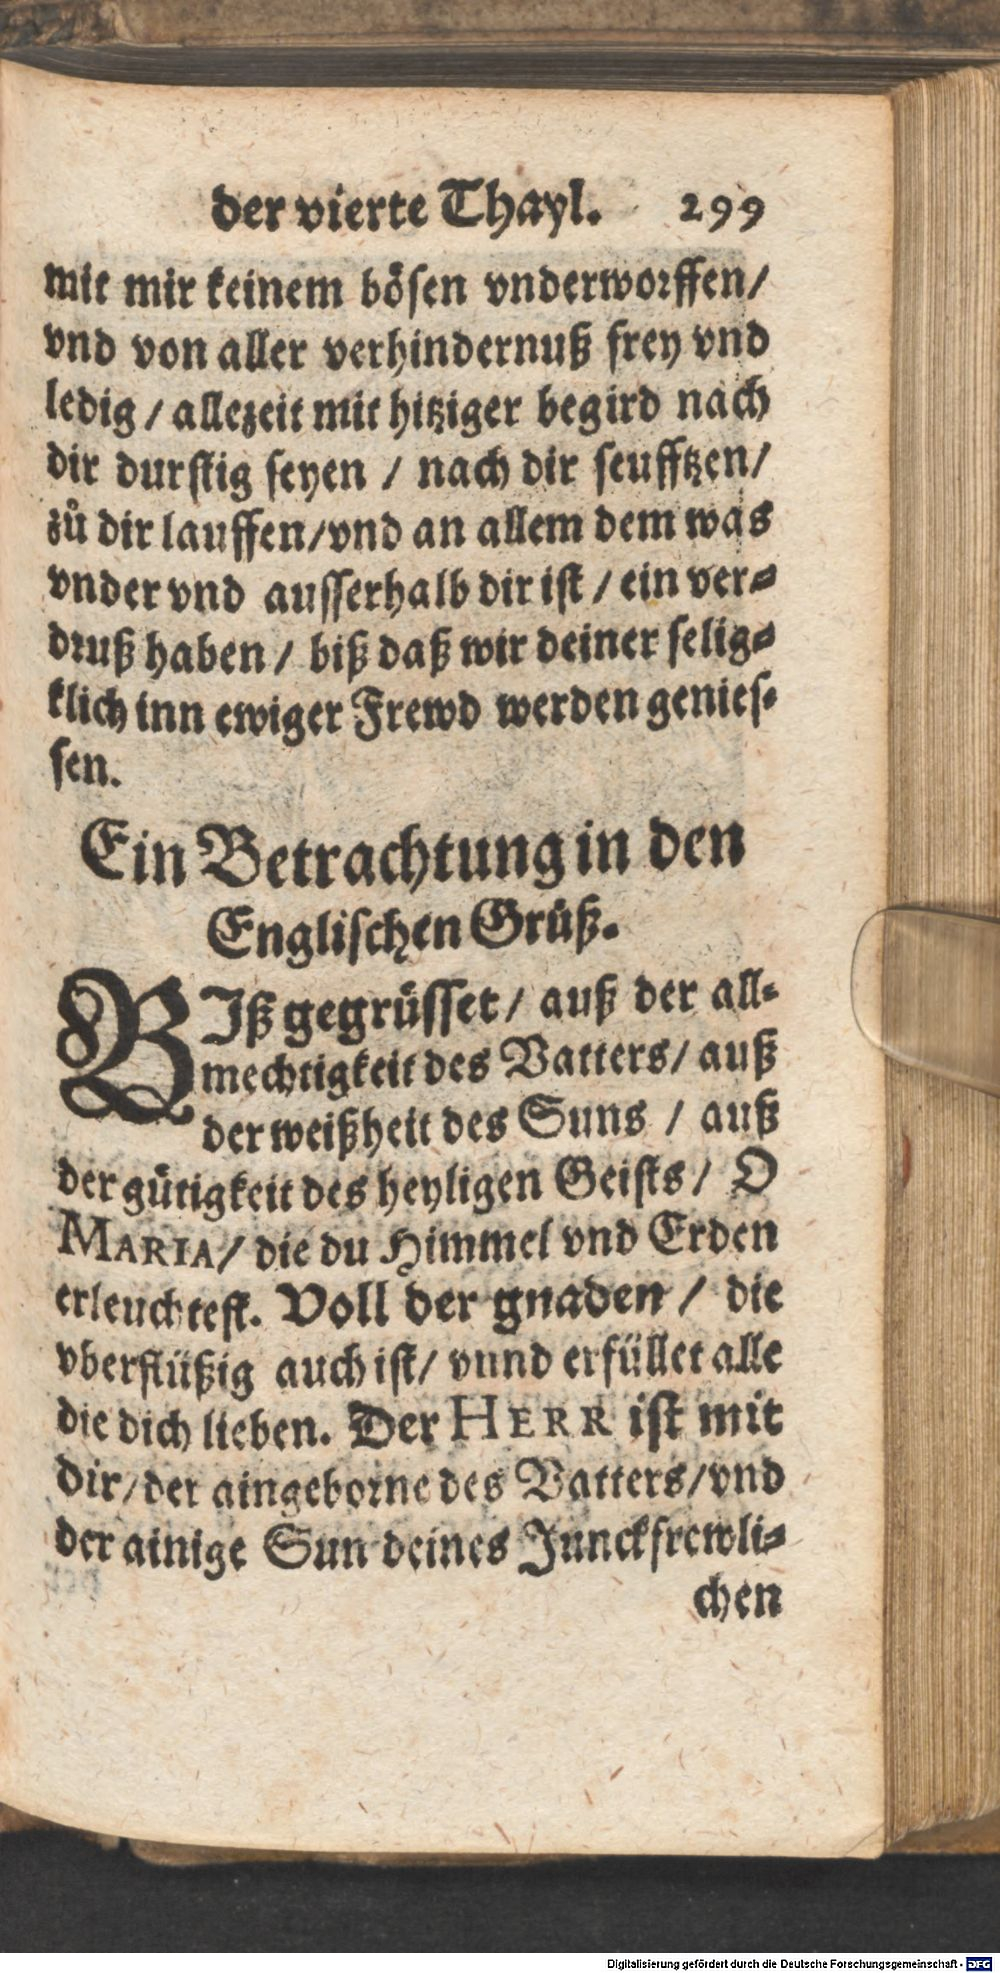 der vierte Thayl. 299
mit mir keinem bösen vnderworffen/
vnd von aller verhindernuß frey vnd
ledig / allezeit mit hitziger begird nach
dir durstig seyen / nach dir seufftzen/
zů dir lauffen/vnd an allem dem was
vnder vnd ausserhalb dir ist / ein ver-
druß haben / biß daß wir deiner selig-
klich inn ewiger Frewd werden genies-
sen.
Ein Betrachtung in den
Englischen Grůß.
BIß gegrüsset / auß der all-
mechtigkeit des Vatters/ auß
der weißheit des Suns / auß
der gütigkeit des heyligen Geists/ O
MARIA/ die du Himmel vnd Erden
erleuchtest. Voll der gnaden / die
vberflüßig auch ist/ vnnd erfüllet alle
die dich lieben. Der HERR ist mit
dir/der aingeborne des Vatters/vnd
der ainige Sun deines Junckfrewli-
chen
Digitalisierung gefördert durch die Deutsche Forschungsgemeinschaft - DFG